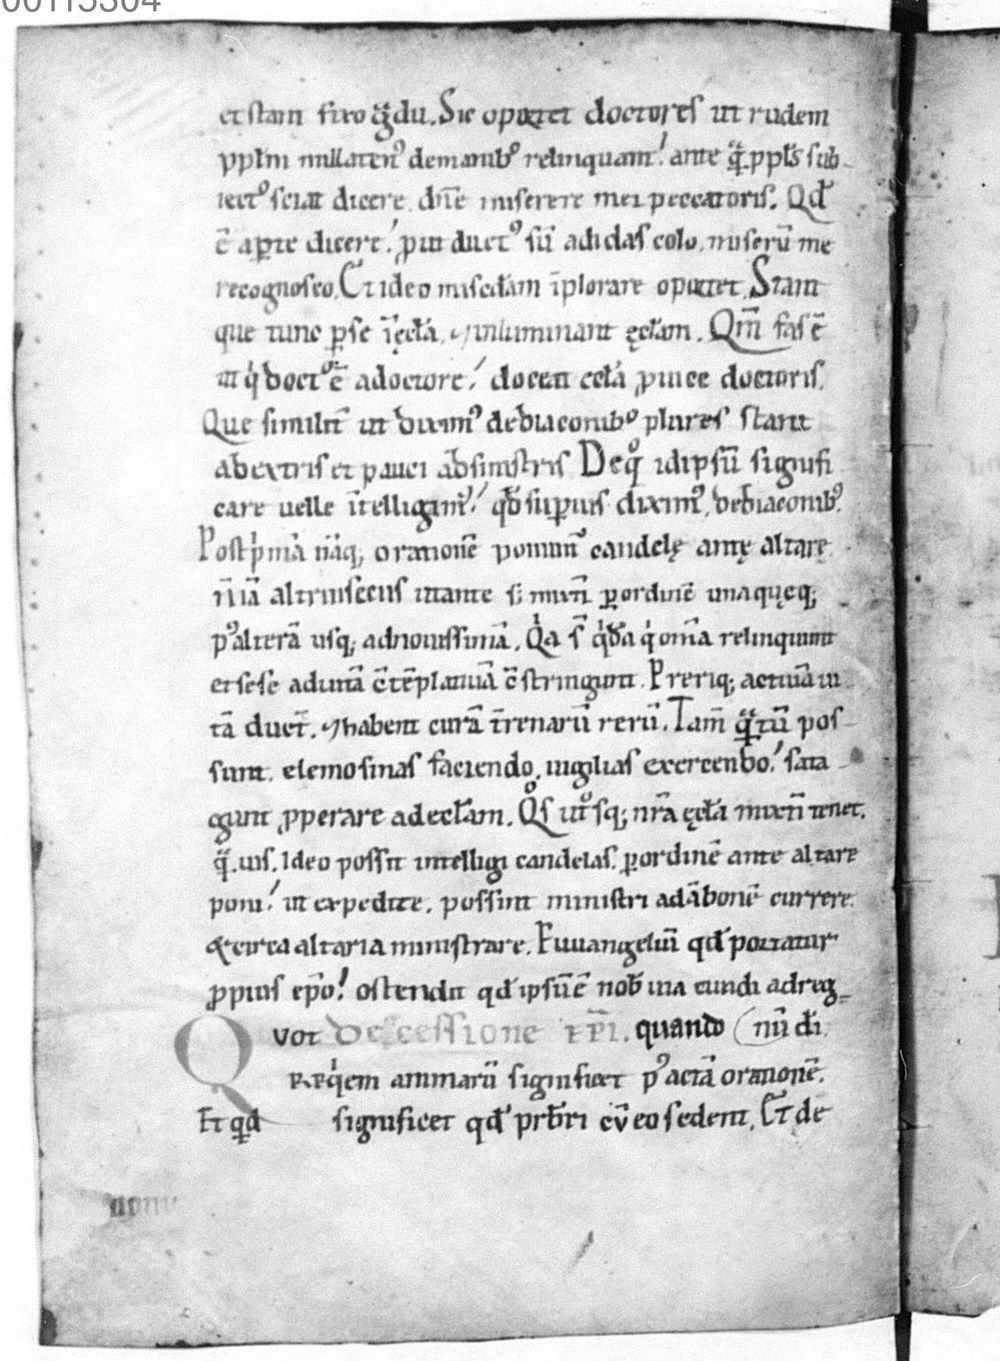 et stant fixo gͣdu. Sic oportet doctores ut rudem
ppl̄m nullaten᷒ demanib᷒ relinquant. ante qͣ̄ ppl̄s sub
iect᷒ sciat dicere. dn̄e miserere mei peccatoris. Qđ
ē aꝑte dicere. ꝓut duct᷒ sū adidas colo. miserū me
recognosco. Et ideo miscđam īplorare oportet. Stant
que tunc ꝑse ī ęcła. ⁊ inluminant ęcłam. Qm̄ fas ē
ut qͥ doct᷒ ē adoctore. docea ecła ꝓuice doctoris.
Que similit̄ ut diximꝰ dediaconibꝰ plures stant
abextris et pauci absinistris Deqͦ idipsū signifi
care uelle ītelligimꝰ. qđ supius diximꝰ. dediaconibꝰ.
Post pͥmā nāq; orationē ponunt᷒ candelę antę altarę
altrinsecus ꝑordinē unaquęq;
pꝰalterā usq; adnouissimā. Qͥa s̄ qͥdā qͥ om̄ia relinquunt
et sese aduitā c̄tēplatiuā c̄stringunt. Preriq; actiuā ui
tā ducn̄t. ⁊ habent curā t̄renarū rerū. Tam̄ qͣ̄tū pos
sunt. elemosinas faciendo. uigilias exercendo. sata
gunt ꝓperare adecłam. Qͦs utͦsq; nr̄a ęcła mixti tenet.
qͣ̄uis. Ideo possn̄t intelligi candelas. ꝑordinē ante altare
poni. ut expedite. possint ministri adābonē currere.
⁊ circa altaria ministrare. Euuangeliū qđ portatur
ꝓpius ep̄o. ostendit qđ ipsū ē nob̄ uia eundi adreg
Qvot desessione xp̄i. quando nūđi
Rͬeqͥem animarū significet pꝰactā orationē.
Et qͣđ significet qđ prb̄ri cū eo sedent. Et de